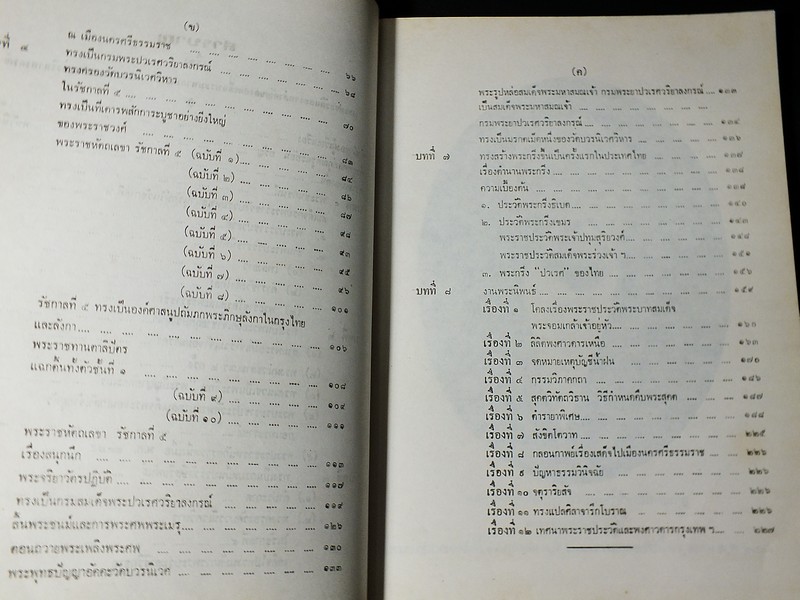 (ข)
ที่ ๔
ณ เมืองนครศรีธรรมราช .... .... .... .... .... .... ๖๖
ทรงเป็นกรมพระปวเรศวริยาลงกรณ์ .... .... .... .... .... ๖๘
ทรงครองวัดบวรนิเวศวิหาร
ในรัชกาลที่ ๕ .... .... .... .... .... .... ๗๐
ทรงเป็นที่เคารพสักการะบูชาอย่างยิ่งใหญ่
ของพระราชวงศ์ .... .... .... .... .... .... ๘๑
พระราชหัตถเลขา รัชกาลที่ ๕ (ฉบับที่ ๑) .... .... .... .... ๘๔
(ฉบับที่ ๒) .... .... .... .... ๘๖
(ฉบับที่ ๓) .... .... .... .... ๘๗
(ฉบับที่ ๔) .... .... .... .... ๙๘
(ฉบับที่ ๕) .... .... .... .... ๙๓
(ฉบับที่ ๖) .... .... .... .... ๙๕
(ฉบับที่ ๗) .... .... .... .... ๙๖
(ฉบับที่ ๘) .... .... .... .... ๑๐๑
รัชกาลที่ ๕ ทรงเป็นองค์ศาสนูปถัมภกพระภิกษุลังกาในกรุงไทย
และลังกา .... .... .... .... .... .... .... ๑๐๖
พระราชทานตาลิปัตร
แฉกดิ้นทั้งตัวชั้นที่ ๑ .... .... .... .... .... .... ๑๐๘
(ฉบับที่ ๙) .... .... .... .... ๑๐๙
(ฉบับที่ ๑๐) .... .... .... .... ๑๑๑
พระราชหัตถเลขา รัชกาลที่ ๕
เรื่องสนุกนึก .... .... .... .... .... .... ๑๑๓
พระจริยาวัตรปฏิบัติ .... .... .... .... .... .... ๑๑๗
ทรงเป็นกรมสมเด็จพระปวเรศวริยาลงกรณ์ .... .... .... .... ๑๑๙
สิ้นพระชนม์และการพระศพพระเมรุ .... .... .... .... .... ๑๒๖
ตอนถวายพระเพลิงพระศพ .... .... .... .... .... ๑๓๐
พระพุทธปัญญาอัคคะวัดบวรนิเวศ .... .... .... .... .... ๑๓๓
(ค)
พระรูปหล่อสมเด็จพระมหาสมณเจ้า กรมพระยาปวเรศวริยาลงกรณ์ .... ๑๓๓
เป็นสมเด็จพระมหาสมณเจ้า .... .... .... .... .... ....
กรมพระยาปวเรศวริยาลงกรณ์ .... .... .... .... .... ๑๓๔
ทรงเป็นมรกตเม็ดหนึ่งของวัดบวรนิเวศวิหาร .... .... .... .... ๑๓๖
บทที่ ๗ ทรงสร้างพระกริ่งขึ้นเป็นครั้งแรกในประเทศไทย .... .... .... .... ๑๓๗
เรื่องตำนานพระกริ่ง .... .... .... .... .... .... .... ๑๓๘
ความเบื้องต้น .... .... .... .... .... .... .... ๑๓๘
๑. ประวัติพระกริ่งธิเบต .... .... .... .... .... .... ๑๔๐
๒. ประวัติพระกริ่งเขมร .... .... .... .... .... .... ๑๔๓
พระราชประวัติพระเจ้าปทุมสุริยวงศ์ .... .... .... .... .... ๑๔๘
พระราชประวัติสมเด็จพระร่วงเจ้า ฯ .... .... .... .... .... ๑๕๑
๓. พระกริ่ง "ปวเรศ" ของไทย .... .... .... .... .... ๑๕๖
บทที่ ๘ งานพระนิพนธ์ .... .... .... .... .... .... .... ๑๕๙
เรื่องที่ ๑ โคลงเรื่องพระราชประวัติพระบาทสมเด็จ
พระจอมเกล้าเจ้าอยู่หัว .... .... .... .... .... ๑๖๐
เรื่องที่ ๒ ลิลิตพงศาวดารเหนือ .... .... .... .... .... ๑๖๓
เรื่องที่ ๓ จดหมายเหตุบัญชีน้ำฝน .... .... .... .... .... ๑๗๖
เรื่องที่ ๔ กรรมวิภาคกถา .... .... .... .... .... .... ๑๘๖
เรื่องที่ ๕ สุคตวิทัตถิวิธาน วิธีกำหนดคืบพระสุคต .... .... .... .... ๑๘๗
เรื่องที่ ๖ ตำรายาพิเศษ .... .... .... .... .... .... ๑๘๘
เรื่องที่ ๗ สังขิตโตวาท .... .... .... .... .... .... ๒๒๕
เรื่องที่ ๘ กลอนกาพย์เรื่องเสด็จไปเมืองนครศรีธรรมราช .... .... .... ๒๒๖
เรื่องที่ ๙ ปัญหาธรรมวินิจฉัย .... .... .... .... .... .... ๒๒๖
เรื่องที่ ๑๐ จตุราริยสัจ .... .... .... .... .... .... ๒๒๖
เรื่องที่ ๑๑ ทรงแปลศิลาจารึกโบราณ .... .... .... .... .... ๒๒๖
เรื่องที่ ๑๒ เทศนาพระราชประวัติและพงศาวดารกรุงเทพ ฯ .... .... .... ๒๒๗